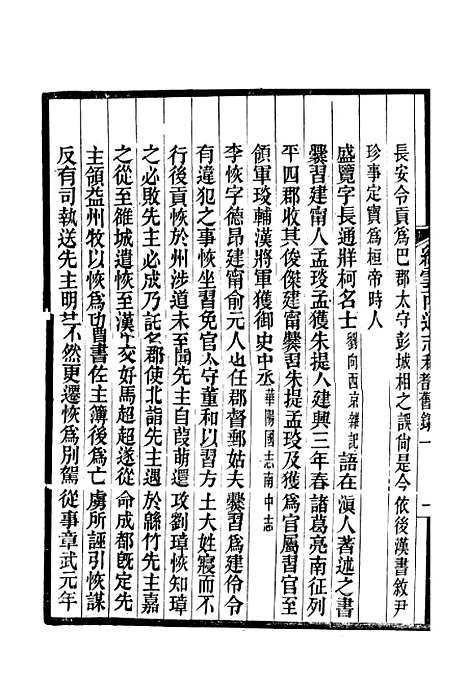 長安令貢爲巴郡太守彭城相之誤尙是今依後漢書敘尹
珍事定寶爲桓帝時人
盛覽字長通牂柯名士劉向西京雜記語在滇人著述之書
爨習建甯人孟琰孟獲朱提人建興三年春諸葛亮南征列
平四郡收其俊傑建甯爨習朱提孟琰及獲爲官屬習官至
領軍琰輔漢將軍獲御史中丞華陽國志南中志
李恢字德昂建甯俞元人任郡督郵姑夫爨習爲建伶令
有違犯之事恢坐習免官太守董和以習方土大姓寢而不
行後貢恢於州涉道未至聞先主自葭萌還攻劉璋恢知璋
之必敗先主必成乃託名郡使北詣先主遇於緜竹先主嘉
之從至雒城遣恢至漢中交好馬超超遂從命成都旣定先
主領益州牧以恢爲功曹書佐主簿後爲亡虜所誣引恢謀
反有司執送先主明其不然更遷恢爲別駕從事章武元年